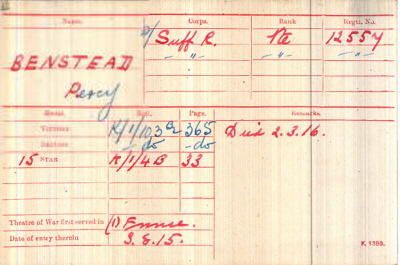 Name. Corps. Rank Regtl. No.
2/ Suff R. Pte 12557
BENSTEAD -"- -"- -"-
Percy
Medal. Roll. Page. Remarks.
Victory K/1/103 B2 365 Died 2.3.16.
British -do -do
15 Star K/1/4B 33
Theatre of War first served in (1) France.
Date of entry therein 3.8.15.
K. 1380.